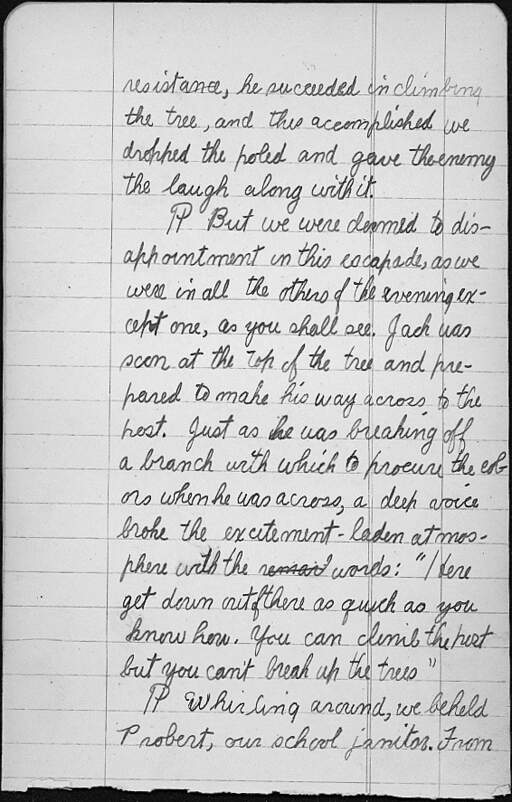 resistance, he succeeded in climbing
the tree, and this accomplished we
dropped the poled and gave the enemy
the laugh along with it.
¶ But we were doomed to dis-
appointment in this escapade, as we
were in all the others of the evening ex-
cept one, as you shall see. Jack was
soon at the top of the tree and pre-
pared to make his way across to the
post. Just as he was breaking off
a branch with which to procure the col-
ors when he was across, a deep voice
broke the excitement-laden atmos-
phere with the remark words: "Here
get down out of there as quick as you
know how. You can climb the post
but you can't break up the trees"
¶ Whirling around, we beheld
Probert, our school janitor. From